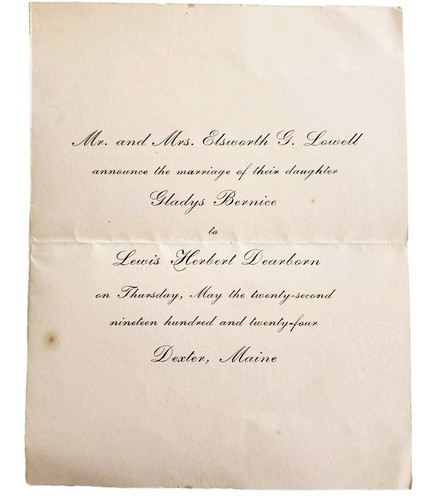 Mr. and Mrs. Elsworth G. Lowell
announce the marriage of their daughter
Gladys Bernice
to
Lewis Herbert Dearborn
on Thursday, May the twenty-second
nineteen hundred and twenty-four
Dexter, Maine